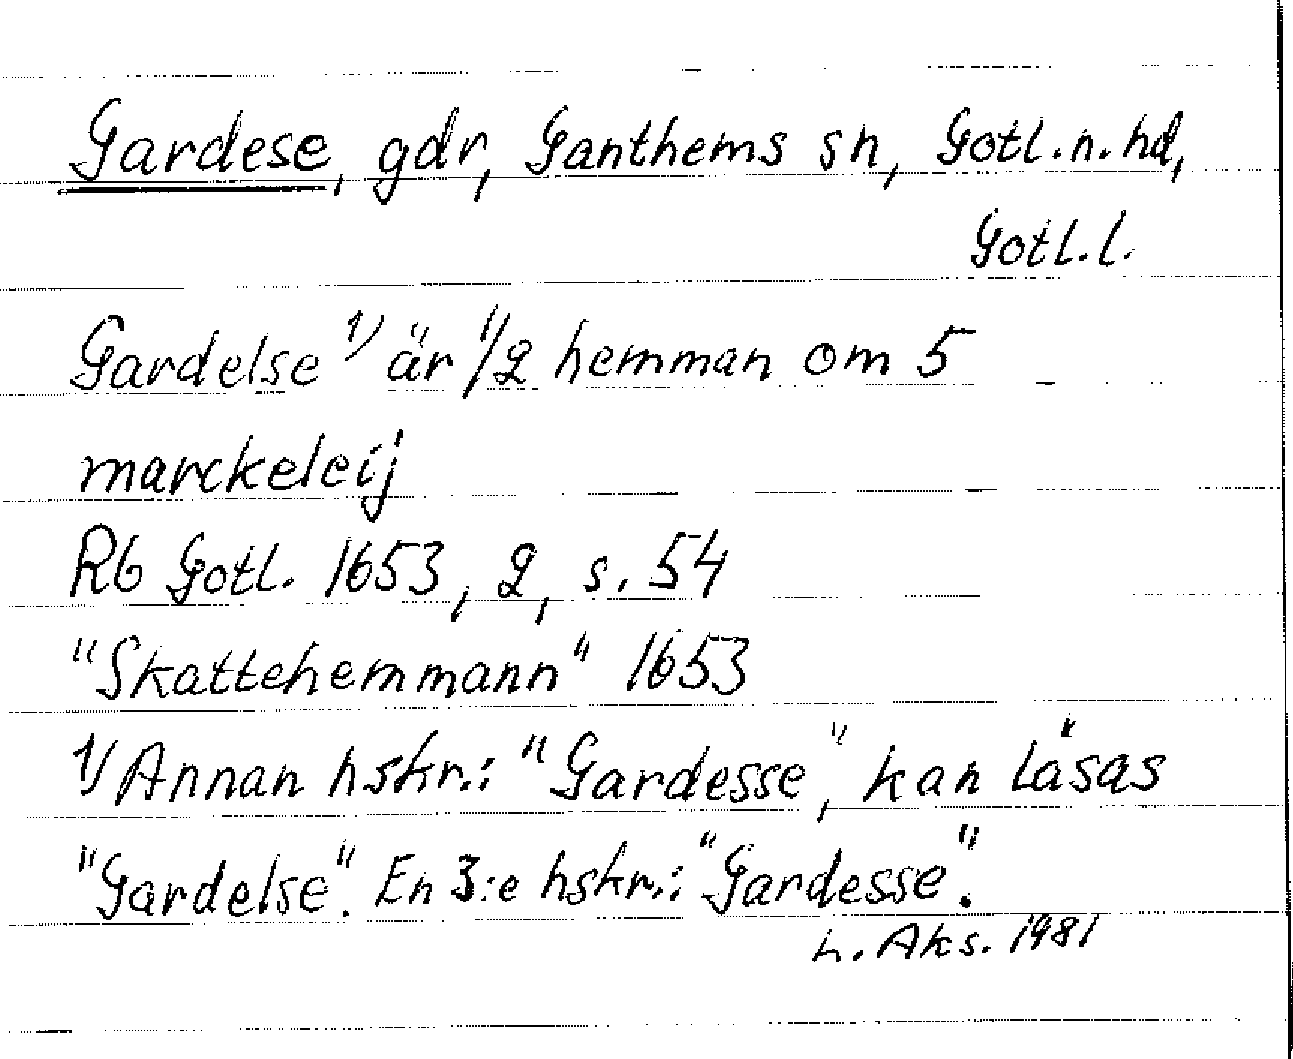 Gardese, gdr, Ganthems sn, Gotl.n.hd,
Gotl.l.
Gardelse 1) är 1/2 hemman om 5
marckeleij
Rb Gotl. 1653, 2, s. 54
"Skattehemmann" 1653
1) Annan hskr.: "Gardesse", kan läsas
"Gardelse". En 3:e hskr.: "Gardesse".
L. Aks. 1981